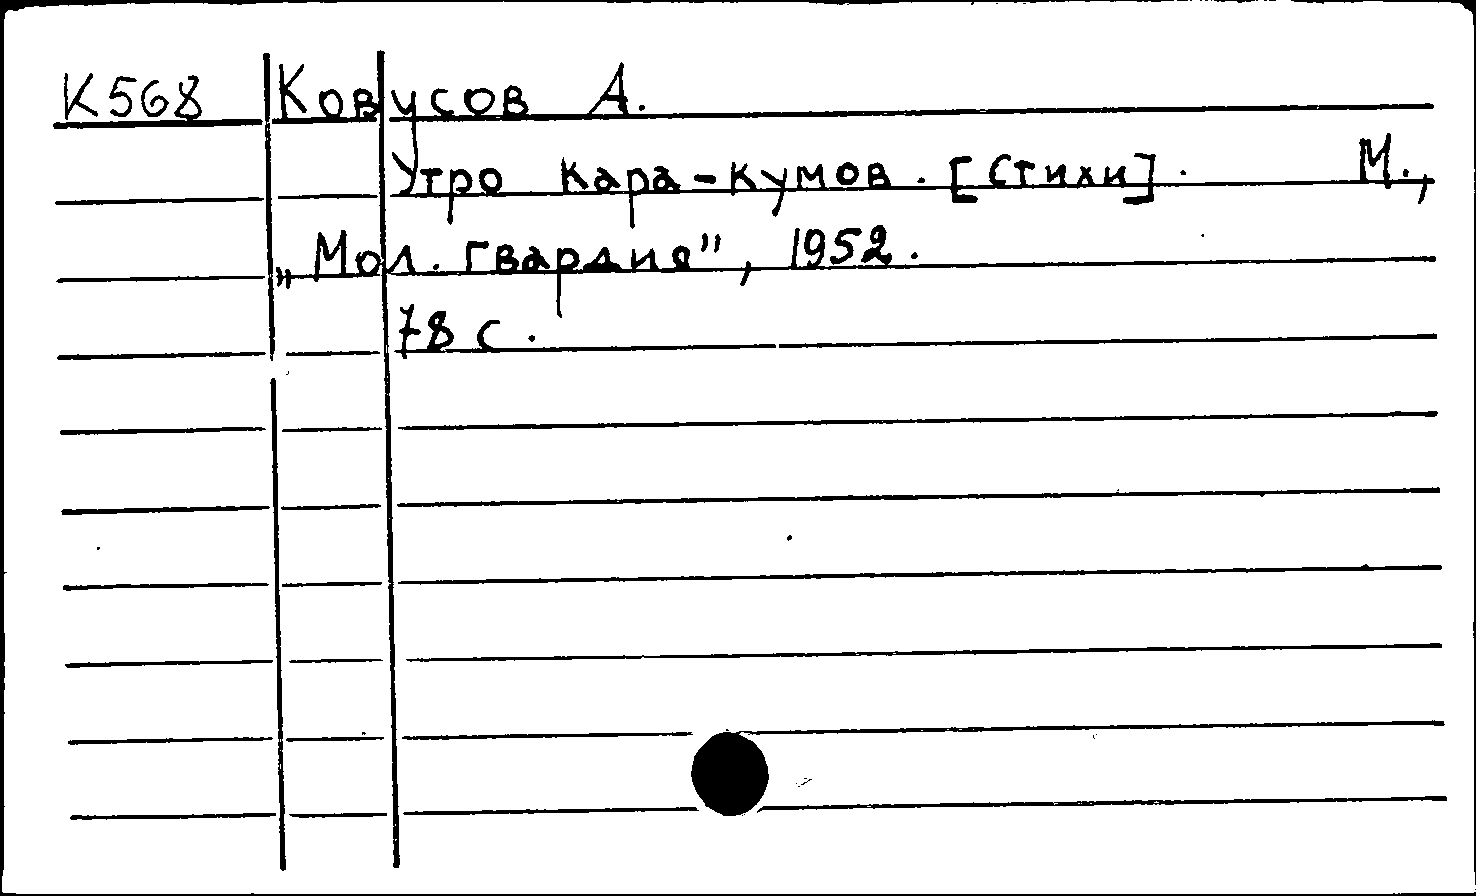 К568 Ковусов А.
Утро Кара-кумов. [Стихи]. М.,
„Мол. гвардия", 1952.
78 с.